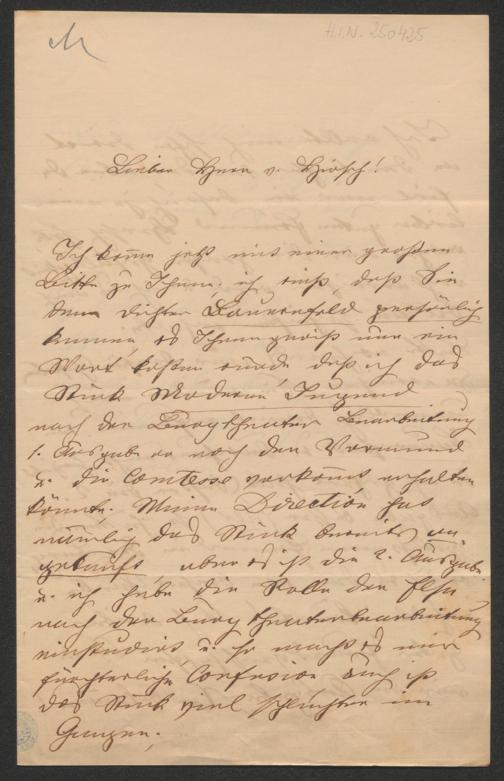 H.I.N. 250425
Lieber Herr v. Hirsch!
Ich komme jetzt mit einer großen
Bitte zu Ihnen. ich weiß, daß Sie
den Dichter Bauernfeld persönlich
kennen, es Ihnen gewiß nur ein
Wort kosten würde, daß ich das
Stück Moderne Jugend
nach der Burgtheater Bearbeitung
1. Ausgabe wo noch der Vormund
u. die Comtesse vorkommt erhalten
könnte. Meine Direction hat
nämlich das Stück bereits an
gekauft aber es ist die 2. Ausgabe
u. ich habe die Rolle der Elsa
nach der Burgtheaterbearbeitung
einstudirt, u. so macht es mir
fürchterliche Confusion auch ist
das Stück viel schlechter im
Ganzen.